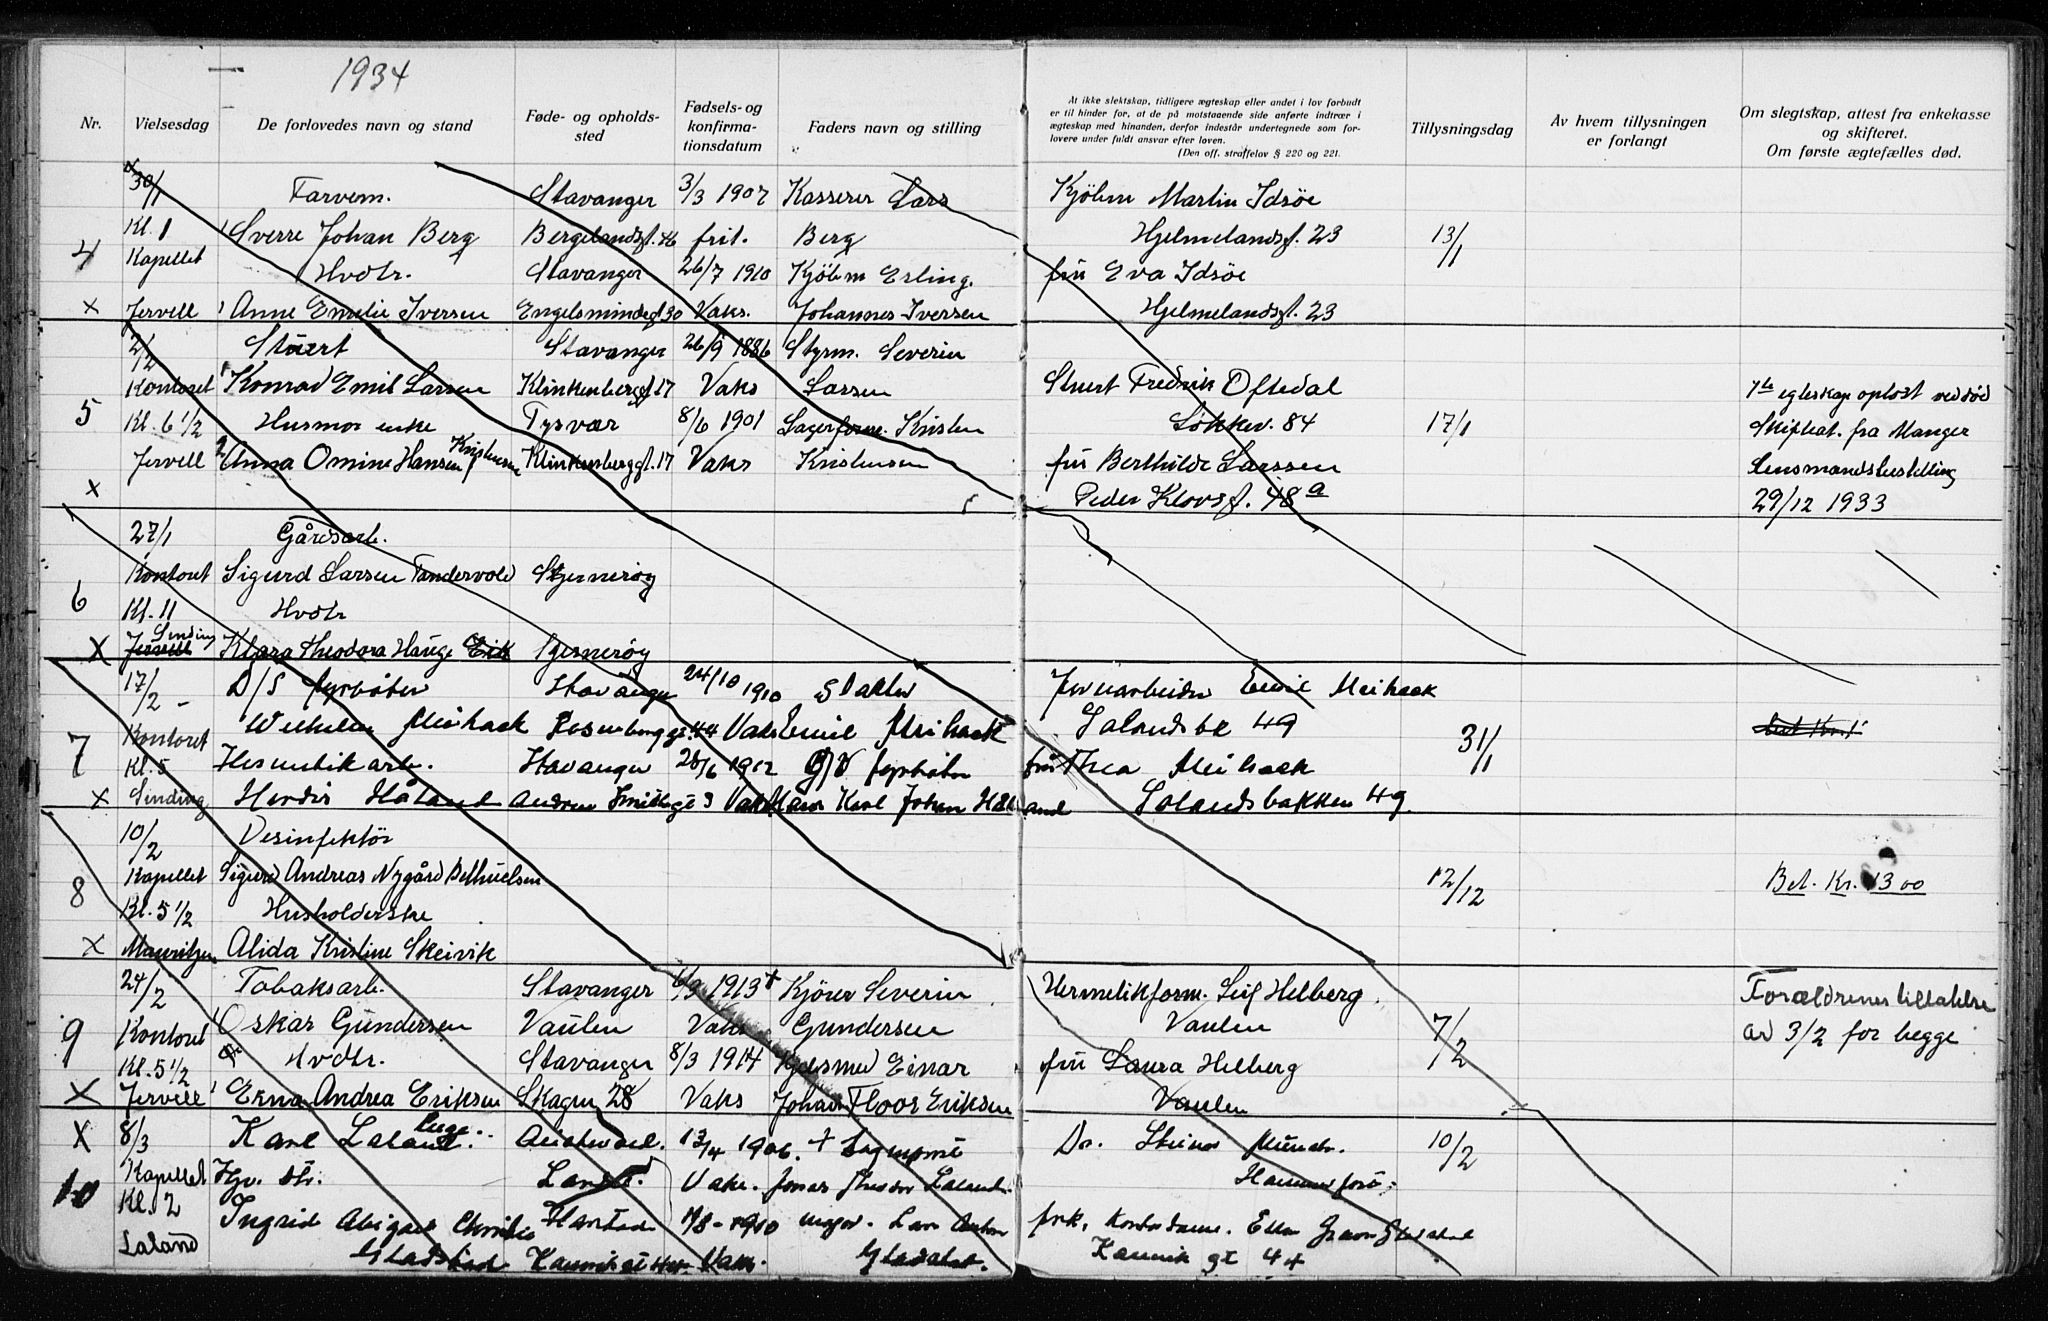 1934
Nr.
Vielsesdag
De forlovedes navn og stand
Føde- og opholds-
sted
Fødsels- og
konfirma-
tionsdatum
Faders navn og stilling
At ikke slektskap, tidligere ægteskap eller andet i lov forbudt
er til hinder for, at de på motstaaende side anførte indtrær i
ægteskap med hinanden, derfor indestår undertegnede som for-
lovere under fuldt ansvar efter loven.
(Den off. straffelov § 220 og 221.
Tillysningsdag
Av hvem tillysningen
er forlangt
Om slegtskap, attest fra enkekasse
og skifteret.
Om første ægtefælles død.
30/1 Farvem. Stavanger 3/3 1907 Kasserer Lars Kjöbm Martin Idsöe
Kl. 1 Sverre Johan Berg Bergelandsgt. 46 frit. Berg Hjelmelandsgt. 23 13/1
4 Kapellet Hvdtr. Stavanger 26/7 1910 Kjöbm Erling. fru Eva Idsöe
x Jervell Anne Emelie Iversen Engelsmindegt 30 Vaks. Johannes Iversen Hjelmelandsgt. 23
2/2 Stuert Stavanger 26/9 1886 Styrm. Severin
Kontoret Konrad Emil Larsen Klinkenberggt. 17 Vaks Larsen Stuert Fredrik Oftedal 1ste egteskap oplöst ved död
5 Kl. 6 1/2 Husmor enke Tysvær 8/6 1901 Lagerform. Kristen Løkkev. 84 17/1 Skifteat. fra Manger
Jervell Anna Omine Hansen f Kristensen Klinkenberggt. 17 Vaks Kristensen fru Berthilde Larssen Lensmandsbestilling
x Peder Klovsgt. 48 a 29/12 1933
27/1 Gårdsarb.
Kontoret Sigurd Larsen Tandervold Stjernerøy
6 Kl. 11 Hvdtr
x Sinding Jervell Klara Theodora Hauge Eik Sjernerøy
17/2 - D/S fyrbøter Stavanger 24/10 1910 Slakter Jernarbeider Emil Meihack
Wilhelm Meihack Rosenberggt. 44 Vaks Emil Meihack Solandsbk 49
7 Kontoret 31/1
Kl. 5 Hermetikarb. Stavanger 28/6 1912 D/S fyrbøter fru Thea Meihack
x Sinding Herdis Håland Andreas Smithsgt 3 Vaks Karl Johan Håland Solandsbakken 49
10/2 Desinfektör
Kapellet Sigurd Andreas Nygård Bethuelsen 12/12 Bet. Kr. 13 00
8 Kl. 5 1/2 Husholderske
x Mauritzen Alida Kristine Skeivik
24/2 Tobaksarb. Stavanger 1913 + Kjörer Severin Hermetikform. Leif Helberg Forældrenes tillatelse
9 Kontoret Oskar Gundersen Vaulen Vaks Gundersen Vaulen 7/2 av 3/2 for begge
Kl. 5 1/2 Hvdtr. Stavanger 8/3 1914 Einar fru Laura Helberg
x Jervell Erna Andrea Eriksen Skagen 28 Vaks Johan Floor Eriksen Vaulen
x 8/3 Karl Laland. 13/4 1906. + Dr. Steinar 10/2
10 Kapellet Hjv. dtr. Vaks. Jonas Laland.
Kl. 12 Ingrid Abigael Harstad 1910 Lars Anton frk. Kontordame. Ella
Laland Gladstad Kannikgt 44 Vaks. Gladstad. Kannik gt 44